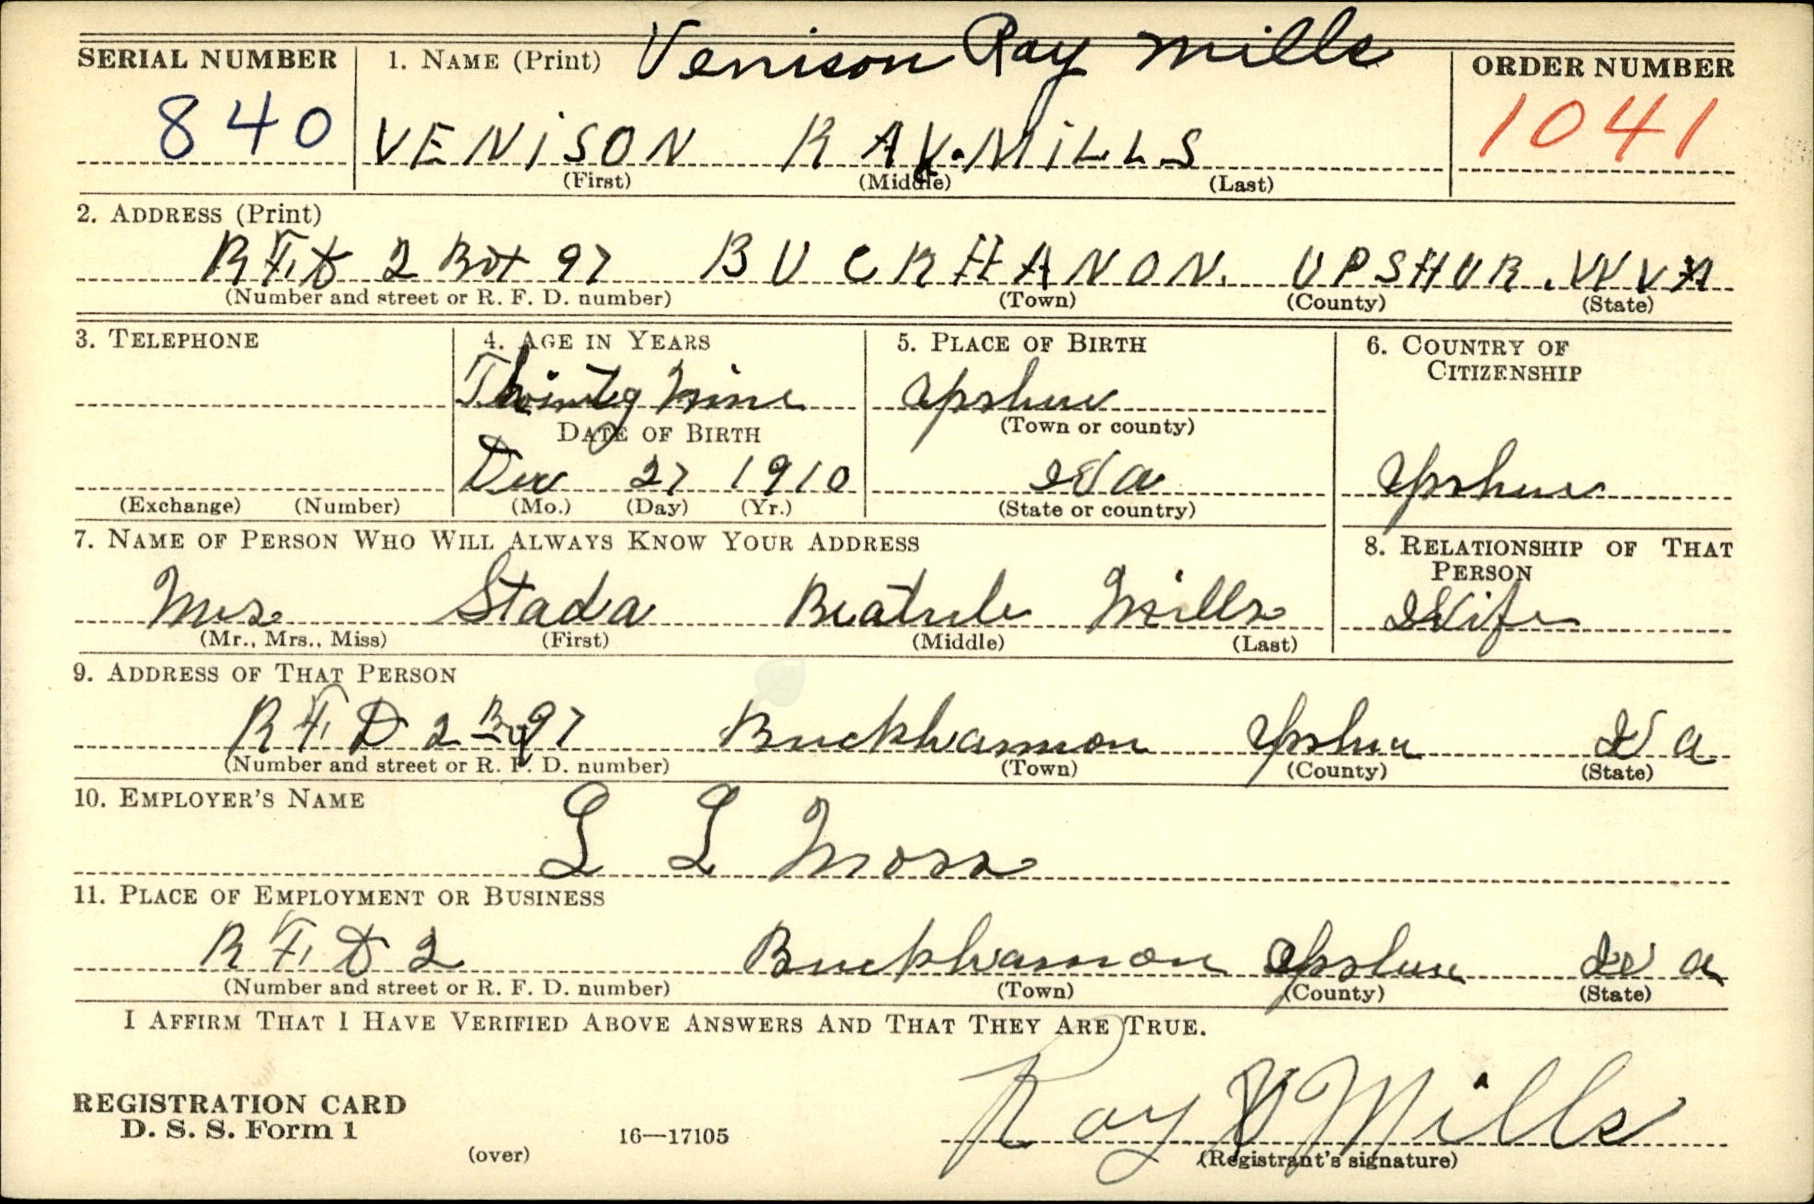 SERIAL NUMBER 1. NAME (Print) Venison Ray Mills ORDER NUMBER
840 VENISON RAY. MILLS 1041
(First) (Middle) (Last)
2. ADDRESS (Print)
R F D 2 Box 97 BUCKHANON. UPSHUR. W VA
(Number and street or R. F. D. number) (Town) (County) (State)
3. TELEPHONE 4. AGE IN YEARS 5. PLACE OF BIRTH 6. COUNTRY OF
CITIZENSHIP
Nine Upshur
DATE OF BIRTH (Town or county)
Dec 27 1910 W Va Upshur
(Exchange) (Number) (Mo.) (Day) (Yr.) (State or country)
7. NAME OF PERSON WHO WILL ALWAYS KNOW YOUR ADDRESS 8. RELATIONSHIP OF THAT
PERSON
Mrs Stada Beatrice Mills Wife
(Mr., Mrs., Miss) (First) (Middle) (Last)
9. ADDRESS OF THAT PERSON
R F D 2 Box 97 Buckhannon Upshur W Va
(Number and street or R. F. D. number) (Town) (County) (State)
10. EMPLOYER'S NAME
L L Moss
11. PLACE OF EMPLOYMENT OR BUSINESS
R F D 2 Buckhannon Upshur W Va
(Number and street or R. F. D. number) (Town) (County) (State)
I AFFIRM THAT I HAVE VERIFIED ABOVE ANSWERS AND THAT THEY ARE TRUE.
REGISTRATION CARD
D. S. S. Form 1 Ray V Mills
(over) 16—17105 (Registrant's signature)